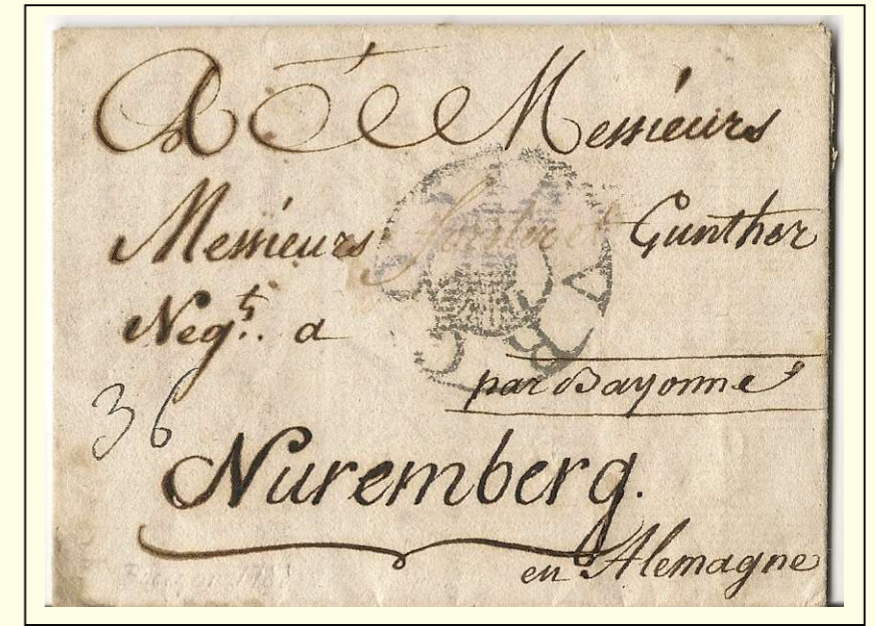 A Messieurs
Messieurs et Gunther
Neg.ts a
par Bayonne
36
Nuremberg.
en Alemagne